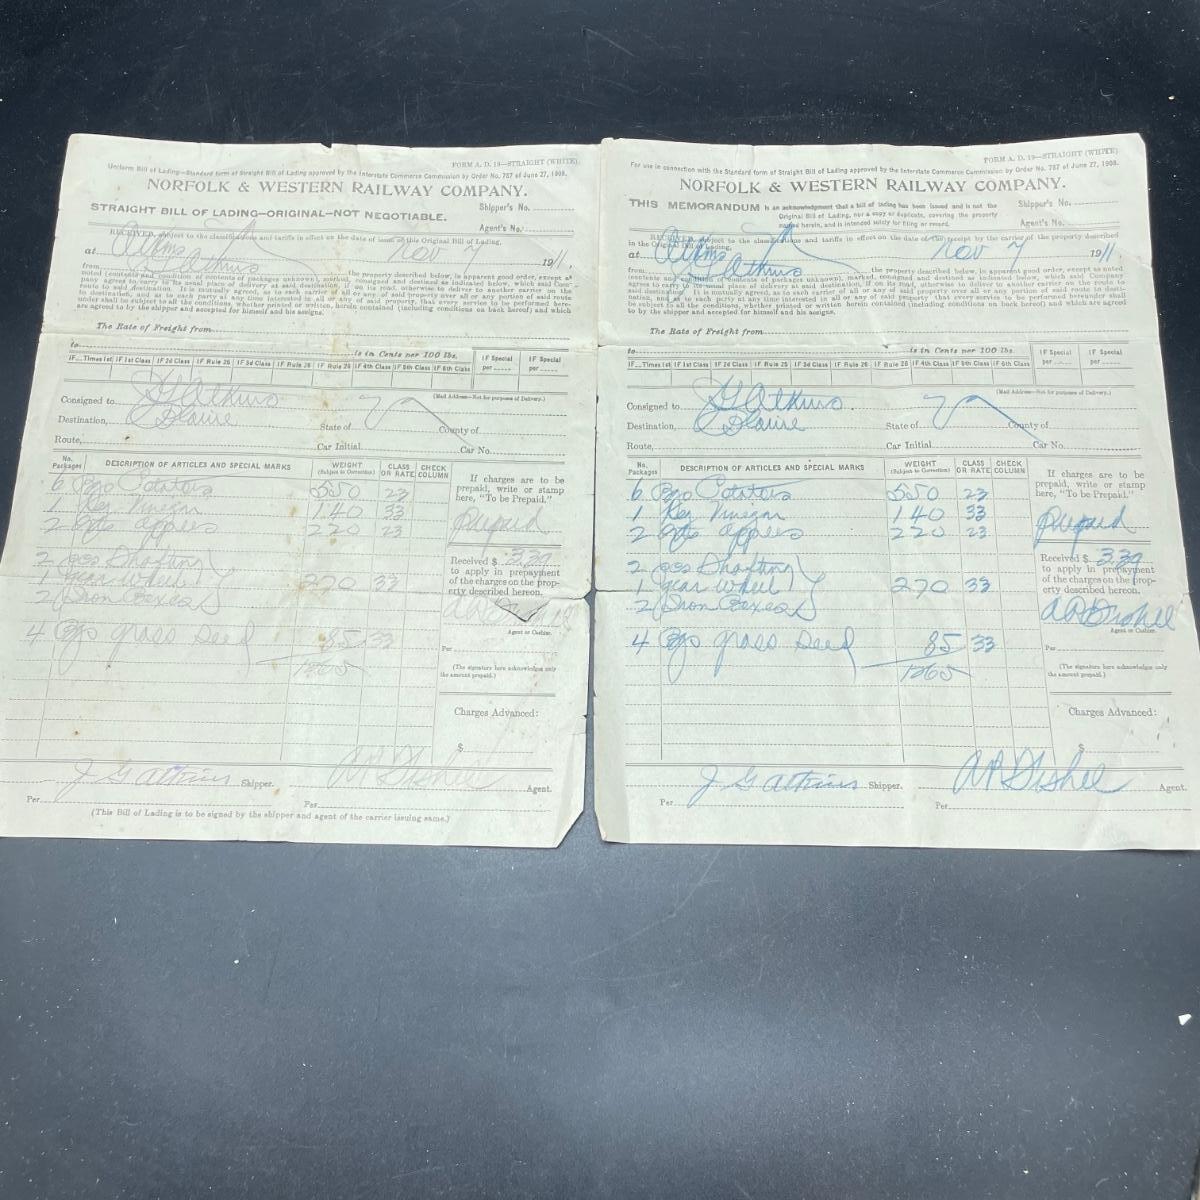 FORM A. D. 19—STRAIGHT (WHITE)
Uniform Bill of Lading—Standard form of Straight Bill of Lading approved by the Interstate Commerce Commission by Order No. 787 of June 27, 1908.
NORFOLK & WESTERN RAILWAY COMPANY.
Shipper's No.
STRAIGHT BILL OF LADING—ORIGINAL—NOT NEGOTIABLE.
Agent's No.
RECEIVED, subject to the classifications and tariffs in effect on the date of issue of this Original Bill of Lading,
at Atkins Nov 7 1911,
from Atkins the property described below, in apparent good order, except as
noted (contents and condition of contents of packages unknown), marked, consigned and destined as indicated below, which said Com-
pany agrees to carry to its usual place of delivery at said destination, if on its road, otherwise to deliver to another carrier on the
route to said destination. It is mutually agreed, as to each carrier of all or any of said property over all or any portion of said route
to destination, and as to each party at any time interested in all or any of said property, that every service to be performed here-
under shall be subject to all the conditions, whether printed or written, herein contained (including conditions on back hereof) and which
are agreed to by the shipper and accepted for himself and his assigns.
The Rate of Freight from
to is in Cents per 100 lbs.
IF Special per
IF Special per
IF Times 1st
IF 1st Class
IF 2d Class
IF Rule 25
IF 3d Class
IF Rule 26
IF Rule 28
IF 4th Class
IF 5th Class
IF 6th Class
(Mail Address—Not for purposes of Delivery.)
Consigned to J G Atkins
Destination, State of County of
Route, Car Initial Car No.
No. Packages
DESCRIPTION OF ARTICLES AND SPECIAL MARKS
WEIGHT (Subject to Correction)
CLASS OR RATE
CHECK COLUMN
6 Bgs Potatoes 550 23
1 Keg Vinegar 140 33
2 apples 220 23
2 pcs Shafting
1 gear wheel 270 33
2 Iron Boxes
4 Bgs grass seed 85 33
1265
If charges are to be
prepaid, write or stamp
here, "To be Prepaid."
prepaid
Received $ 3.39
to apply in prepayment
of the charges on the prop-
erty described hereon.
Agent or Cashier.
Per
(The signature here acknowledges only
the amount prepaid.)
Charges Advanced:
$
J G Atkins Shipper.
Agent.
Per
Per
(This Bill of Lading is to be signed by the shipper and agent of the carrier issuing same.)
FORM A. D. 19—STRAIGHT (WHITE)
For use in connection with the Standard form of Straight Bill of Lading approved by the Interstate Commerce Commission by Order No. 787 of June 27, 1908.
NORFOLK & WESTERN RAILWAY COMPANY.
THIS MEMORANDUM is an acknowledgment that a bill of lading has been issued and is not the
Original Bill of Lading, nor a copy or duplicate, covering the property
named herein, and is intended solely for filing or record.
Shipper's No.
Agent's No.
RECEIVED, subject to the classifications and tariffs in effect on the date of the receipt by the carrier of the property described
in the Original Bill of Lading,
at Atkins Nov 7 1911.
from J G Atkins the property described below, in apparent good order, except as noted
(contents and condition of contents of packages unknown), marked, consigned and destined as indicated below, which said Company
agrees to carry to its usual place of delivery at said destination, if on its road, otherwise to deliver to another carrier on the route to
said destination. It is mutually agreed, as to each carrier of all or any of said property over all or any portion of said route to desti-
nation, and as to each party at any time interested in all or any of said property that every service to be performed hereunder shall
be subject to all the conditions, whether printed or written herein contained (including conditions on back hereof) and which are agreed
to by the shipper and accepted for himself and his assigns.
The Rate of Freight from
to is in Cents per 100 lbs.
IF Special per
IF Special per
IF Times 1st
IF 1st Class
IF 2d Class
IF Rule 25
IF 3d Class
IF Rule 26
IF Rule 28
IF 4th Class
IF 5th Class
IF 6th Class
(Mail Address—Not for purposes of Delivery.)
Consigned to J G Atkins
Destination, State of County of
Route, Car Initial Car No.
No. Packages
DESCRIPTION OF ARTICLES AND SPECIAL MARKS
WEIGHT (Subject to Correction)
CLASS OR RATE
CHECK COLUMN
6 Bgs Potatoes 550 23
1 Keg Vinegar 140 33
2 apples 220 23
2 pcs Shafting
1 gear wheel 270 33
2 Iron Boxes
4 Bgs grass seed 85 33
1265
If charges are to be
prepaid, write or stamp
here, "To be Prepaid."
prepaid
Received $ 3.39
to apply in prepayment
of the charges on the prop-
erty described hereon.
Agent or Cashier.
Per
(The signature here acknowledges only
the amount prepaid.)
Charges Advanced:
$
J G Atkins Shipper.
Agent.
Per
Per